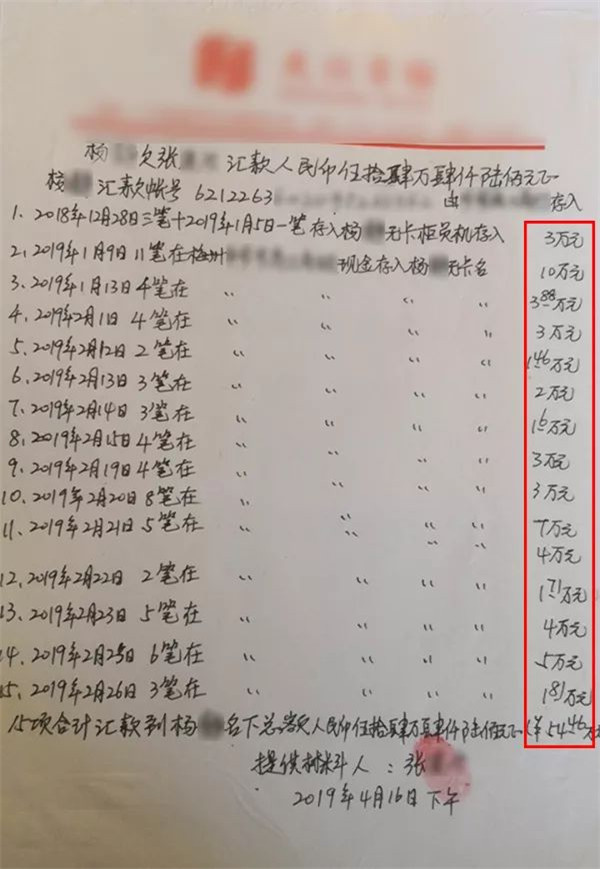 杨 欠张 汇款人民币伍拾肆万肆仟陆佰元正
杨 汇款帐号 6212263 由 存入
1、2018年12月28日三笔+2019年1月5日一笔存入杨 无卡柜员机存入 3万元
2、2019年1月9日11笔在梅州 现金存入杨 无卡名 10万元
3、2019年1月13日4笔在 〃 〃 〃 〃 3.88万元
4、2019年2月1日 4笔在 〃 〃 〃 〃 3万元
5、2019年2月12日 2笔在 〃 〃 〃 〃 1.46万元
6、2019年2月13日 3笔在 〃 〃 〃 〃 2万元
7、2019年2月14日 3笔在 〃 〃 〃 〃 1.6万元
8、2019年2月15日4笔在 〃 〃 〃 〃 3万元
9、2019年2月19日4笔在 〃 〃 〃 〃 3万元
10、2019年2月20日8笔在 〃 〃 〃 〃 7万元
11、2019年2月21日5笔在 〃 〃 〃 〃 4万元
12、2019年2月22日 2笔在 〃 〃 〃 〃 1.71万元
13、2019年2月23日 5笔在 〃 〃 〃 〃 4万元
14、2019年2月25日 6笔在 〃 〃 〃 〃 5万元
15、2019年2月26日 3笔在 〃 〃 〃 〃 1.81万元
15项合计汇款到杨 名下总额人民币伍拾肆万肆仟陆佰元正（¥54.46万
提供材料人：张
2019年4月16日下午